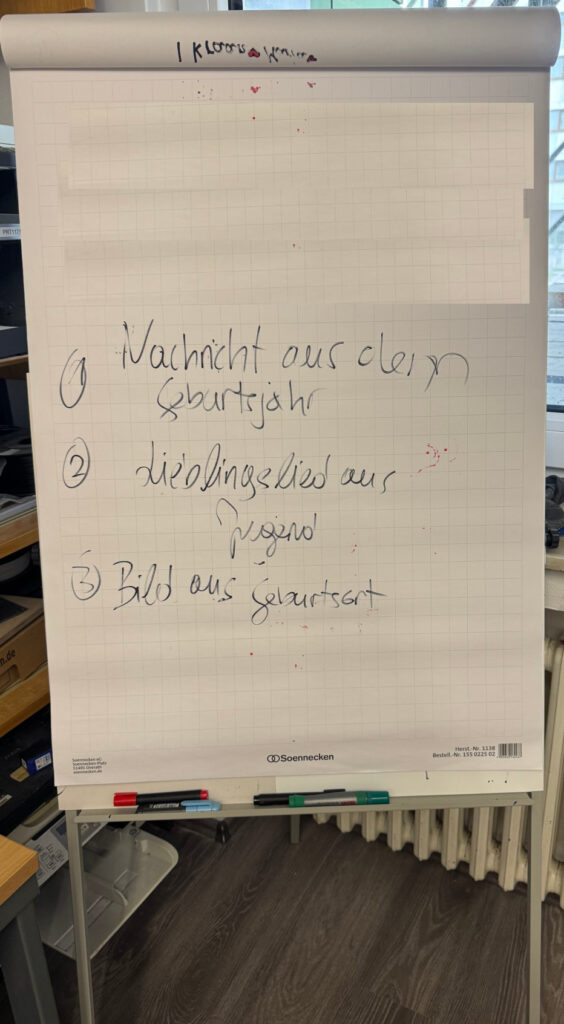 ① Nachricht aus dem
Geburtsjahr
② Lieblingslied aus
Jugend
③ Bild aus Geburtsort
Soennecken eG
Soennecken-Platz
51491 Overath
soennecken.de
Soennecken
Herst.-Nr. 1138
Bestell.-Nr. 155 0225 02